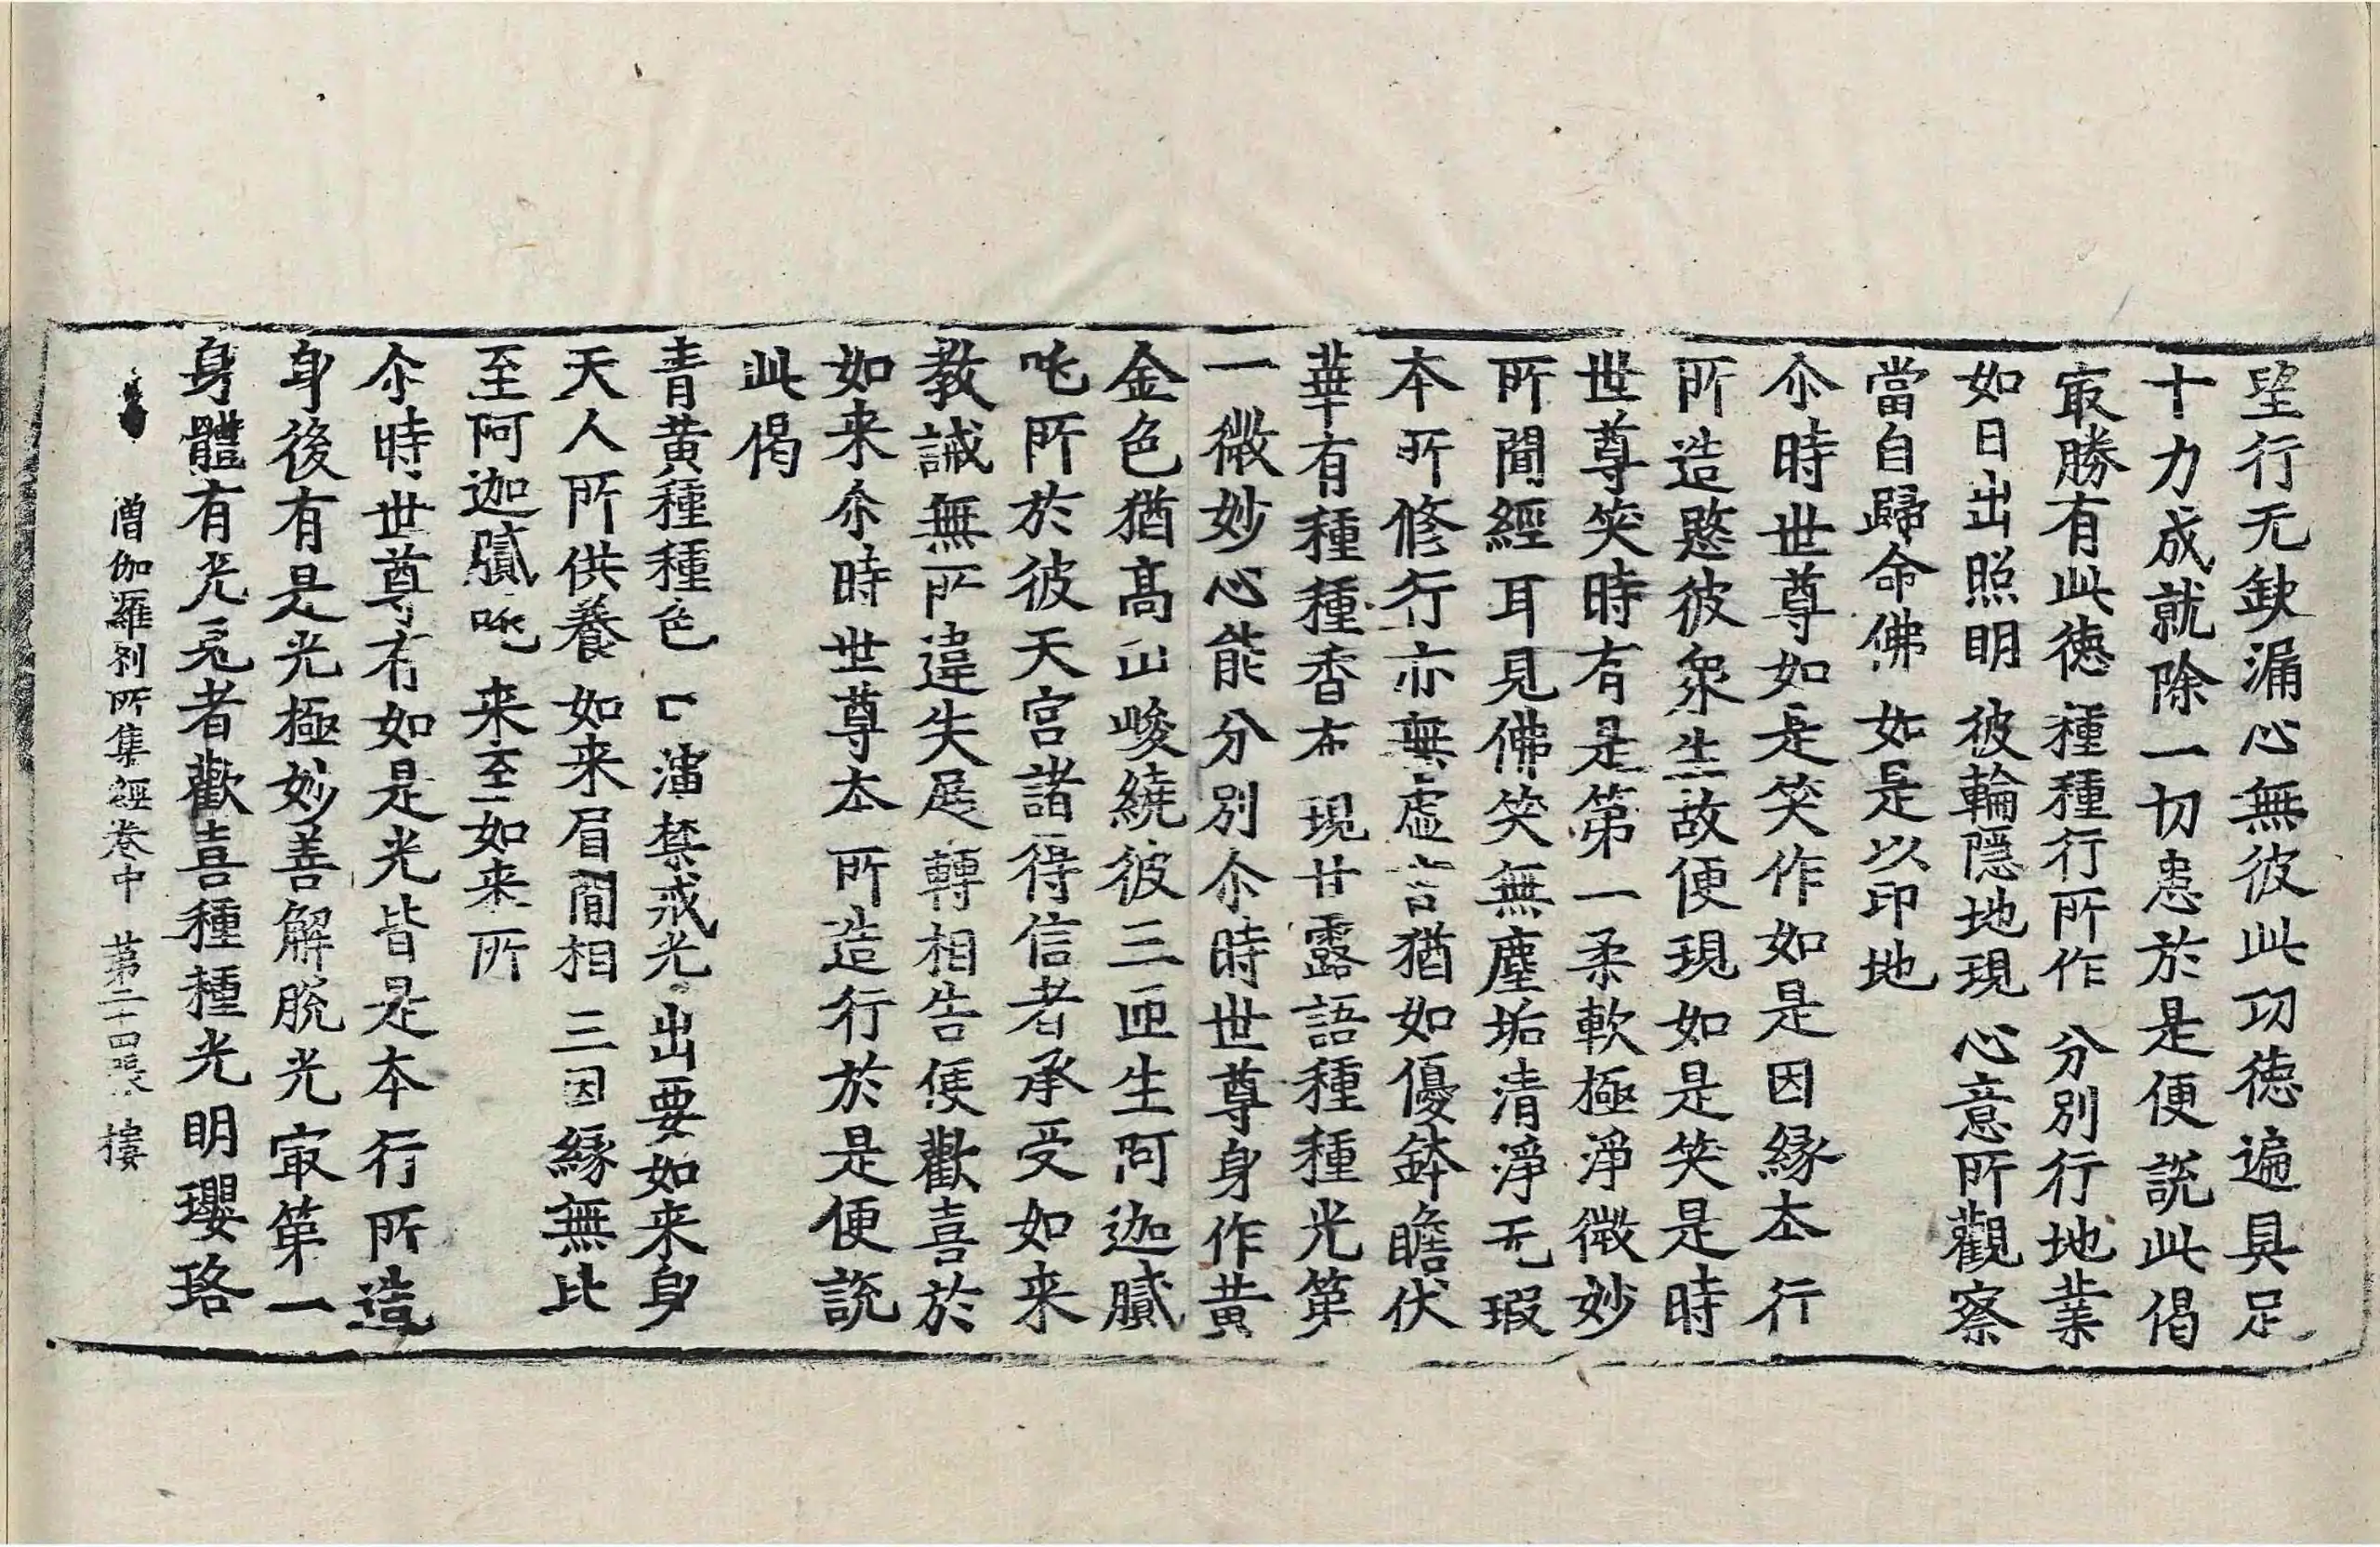 望行无缺漏心無彼此功徳遍具足
十力成就除一切患於是便說此偈
㝡勝有此徳 種種行所作 分別行地業
如日出照明 彼輪隱地現 心意所觀察
當自歸命佛 如是以印地
尒時世尊如是笑作如是因緣本行
所造愍彼衆生故便現如是笑是時
世尊笑時有是第一柔軟極淨微妙
所聞經耳見佛笑無塵垢清淨无瑕
本所修行亦無虛言猶如優鉢瞻伏
華有種種香布現甘露語種種光第
一微妙心能分別尒時世尊身作黄
金色猶高山峻繞彼三匝生阿迦膩
吒所於彼天宮諸得信者承受如来
教誡無所違失展轉相告便歡喜於
如来尒時世尊本所造行於是便說
此偈
青黄種種色 禁戒光出要 如来身
天人所供養 如来眉間相 三因緣無比
至阿迦膩吒 来至如来所
尒時世尊有如是光皆是本行所造
身後有是光極妙善解脫光㝡第一
身體有光見者歡喜種種光明瓔珞
僧伽羅刹所集經卷中 第二十四張 樓